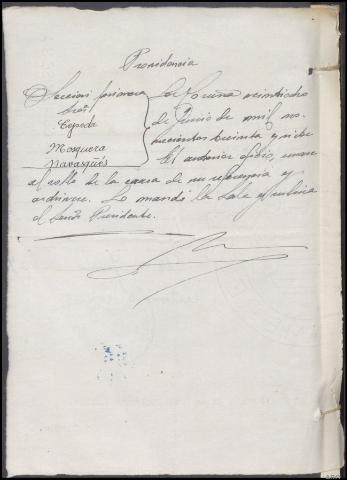 Providencia
Seccion primera
Cepeda
Mosquera
Navasqüés
La Coruña veintiocho
de Junio de mil no-
vecientos treinta y siete
El anterior oficio, unase
al rollo de la causa de su referencia y
archivese. Lo mandó la Sala y rubrica
el Señor Presidente.